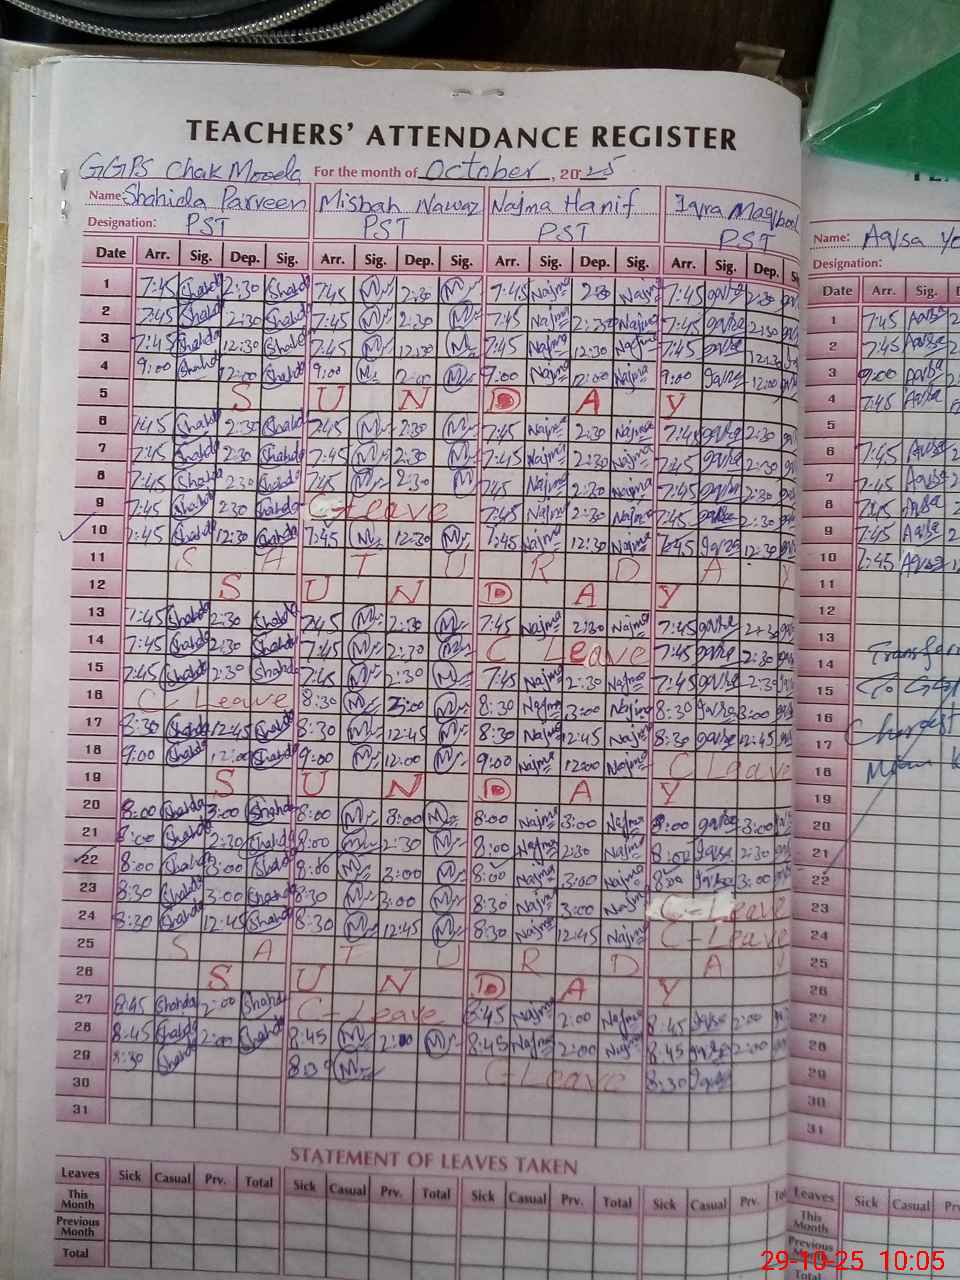 TEACHERS' ATTENDANCE REGISTER
GGPS Chak Mooda For the month of October, 2025
Name: Shahida Parveen Misbah Nawaz Najma Hanif Iqra Maqbool
Designation: PST PST PST PST
Date Arr. Sig. Dep. Sig. Arr. Sig. Dep. Sig. Arr. Sig. Dep. Sig. Arr. Sig. Dep.
1 7:45 Shahida 2:30 Shahida 7:45 M 2:30 M 7:45 Najma 2:30 Najma 7:45 2:30
2 7:45 Shahida 2:30 Shahida 7:45 M 2:30 M 7:45 Najma 2:30 Najma 7:45 2:30
3 7:45 Shahida 12:30 Shahida 7:45 M 12:30 M 7:45 Najma 12:30 Najma 7:45 12:30
4 9:00 Shahida 12:00 Shahida 9:00 M M 9:00 Najma 12:00 Najma 9:00 12:00
5 S U N D A Y
6 7:45 Shahida 2:30 Shahida 7:45 M 2:30 M 7:45 Najma 2:30 Najma 7:45 2:30
7 7:45 Shahida 2:30 Shahida 7:45 M 2:30 M 7:45 Najma 2:30 Najma 7:45 2:30
8 7:45 Shahida 2:30 Shahida 7:45 M 2:30 M 7:45 Najma 2:30 Najma 7:45 2:30
9 7:45 Shahida 2:30 Shahida C-Leave 7:45 Najma 2:30 Najma 7:45 2:30
10 7:45 Shahida 12:30 Shahida 7:45 M 12:30 M 7:45 Najma 12:30 Najma 7:45 12:30
11 S A T U R D A Y
12 S U N D A Y
13 7:45 Shahida 2:30 Shahida 7:45 M 2:30 M 7:45 Najma 2:30 Najma 7:45 2:30
14 7:45 Shahida 2:30 Shahida 7:45 M 2:30 M C Leave 7:45 2:30
15 7:45 Shahida 2:30 Shahida 7:45 M 2:30 M 7:45 Najma 2:30 Najma 7:45 2:30
16 C Leave 8:30 M 3:00 M 8:30 Najma 3:00 Najma 8:30 3:00
17 8:30 Shahida 12:45 Shahida 8:30 M 12:45 M 8:30 Najma 12:45 Najma 8:30 12:45
18 9:00 Shahida 12:00 Shahida 9:00 M 12:00 M 9:00 Najma 12:00 Najma C Leave
19 S U N D A Y
20 8:00 Shahida 3:00 Shahida 8:00 M 3:00 M 8:00 Najma 3:00 Najma 8:00 3:00
21 8:00 Shahida 2:30 Shahida 8:00 M 2:30 M 8:00 Najma 2:30 Najma 8:00 2:30
22 8:00 Shahida 3:00 Shahida 8:00 M 3:00 M 8:00 Najma 3:00 Najma 8:00 3:00
23 8:30 Shahida 3:00 Shahida 8:30 M 3:00 M 8:30 Najma 3:00 Najma C-Leave
24 8:30 Shahida 12:45 Shahida 8:30 M 12:45 M 8:30 Najma 12:45 Najma C-Leave
25 S A T U R D A Y
26 S U N D A Y
27 8:45 Shahida 2:00 Shahida C-Leave 8:45 Najma 2:00 Najma 8:45 2:00
28 8:45 Shahida 2:00 Shahida 8:45 M 2:00 M 8:45 Najma 2:00 Najma 8:45 2:00
29 8:30 Shahida M C-Leave 8:30
30
31
STATEMENT OF LEAVES TAKEN
Leaves Sick Casual Prv. Total Sick Casual Prv. Total Sick Casual Prv. Total Sick Casual Prv.
This Month
Previous Month
Total
Name: Aqsa
Designation:
Date Arr. Sig.
1 7:45 Aqsa
2 7:45 Aqsa
3 9:00 Aqsa
4 7:45 Aqsa
5
6 7:45 Aqsa
7 7:45 Aqsa
8 7:45 Aqsa
9 7:45 Aqsa
10 7:45 Aqsa
11
12
13
14
15 To
16
17
18
19
20
21
22
23
24
25
26
27
28
29
30
31
Leaves Sick Casual
This Month
Previous Month
Total
29-10-25 10:05